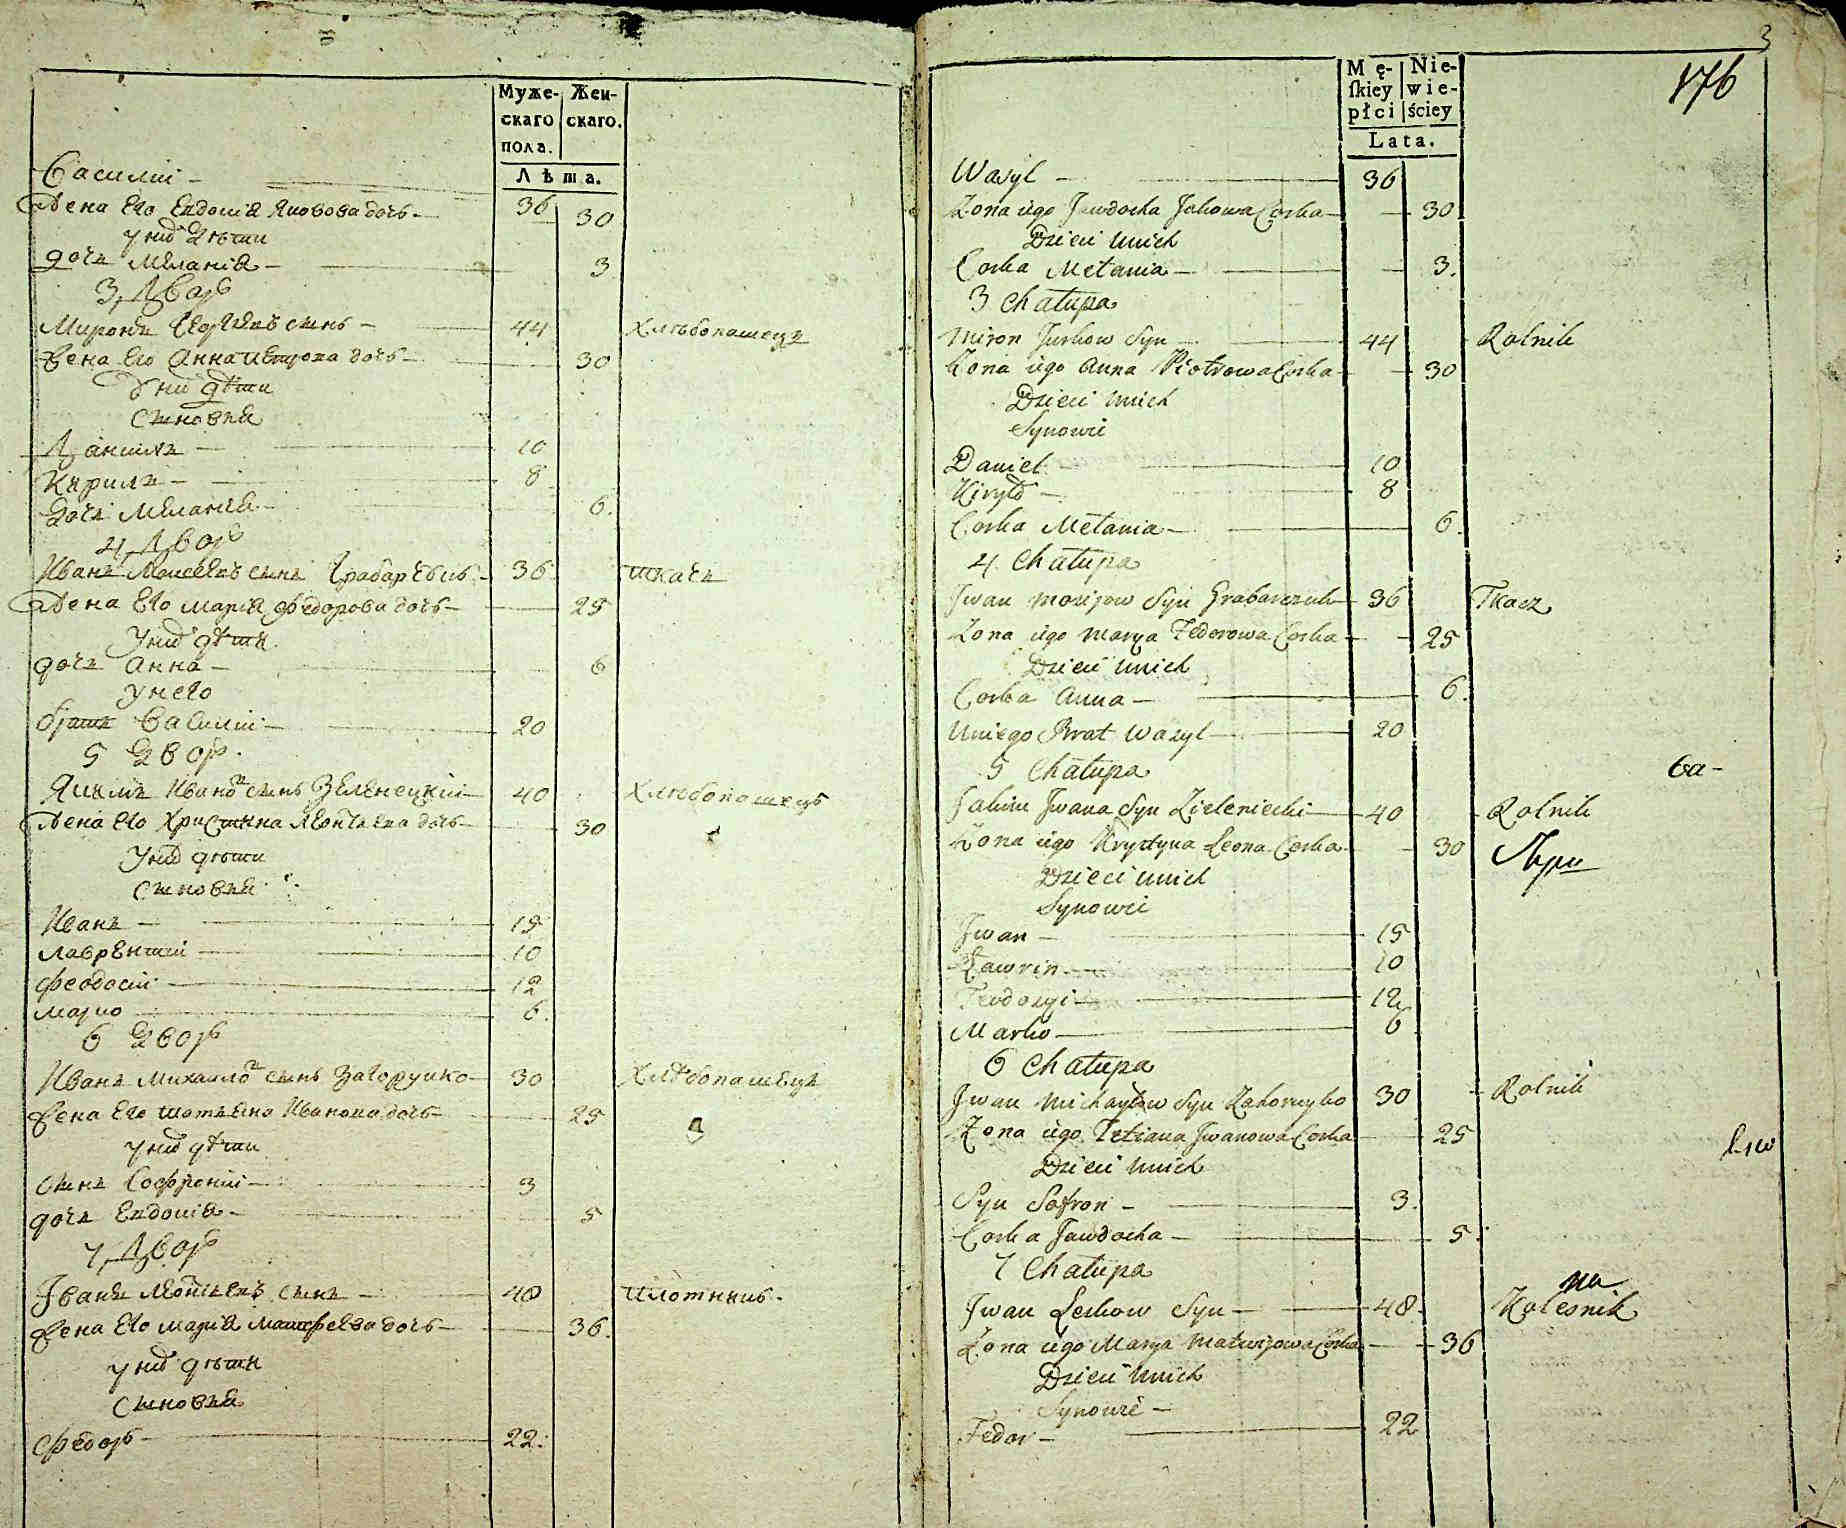 Муже-
скаго
пола.
Жен-
скаго.
Лѣта.
Василій 36
Жена Его Евдокіа Яковова дочь 30
У них дѣти
дочь Меланіа 3
3, Дворъ
Миронъ сынъ 44 Хлѣбопашецъ
Жена Его Анна Петрова дочь 30
У них дѣти
Сыновья
Данилъ 10
Кирилъ 8
Дочь Меланіа 6.
4, Дворъ
Иванъ Моисеевъ сынъ Грабарчукъ 36 Ткачъ
Жена Его Маріа Федорова дочь 25
У них дѣти
дочь Анна 6
У него
братъ Василій 20
5 Дворъ
Якимъ Иванов сынъ Зеленецкій 40 Хлѣбопашецъ
Жена Его Христина дочь 30
У них дѣти
Сыновья
Иванъ 15
Лаврентій 10
Феодосій 12
Марко 6.
6 Дворъ
Иванъ Михайлов сынъ Загоруйко 30 Хлѣбопашецъ
Жена Его Татьяна Иванова дочь 25
У них дѣти
Сынъ Софроній 3
дочь Евдокіа 5
7, Дворъ
Іванъ сынъ 48 Плотникъ.
Жена Его Маріа Матфеева дочь 36.
У них дѣти
Сыновья
Федоръ 22.
3
176
Mę-
skiey
płci
Nie-
wie-
ściey
Lata.
Wasyl 36
Zona iego Jawdocha Jakowa Corka 30
Dzieci unich
Corka Melania 3.
3 Chałupa
Miron Jurkow Syn 44 Rolnik
Zona iego Anna Piotrowa Corka 30
Dzieci unich
Synowie
Daniel 10
Kiryło 8
Corka Melania 6.
4. Chałupa
Jwan Mosijow Syn Grabarczuk 36 Tkacz
Zona iego Marya Fedorowa Corka 25
Dzieci unich
Corka Anna 6.
Uniego Brat Wasyl 20
5 Chałupa
ва-
Jakim Jwana Syn Zieleniecki 40 Rolnik
Zona iego Krystyna Leona Corka 30
Dzieci unich
Synowie
Jwan 15
Lawrin 10
Teodozyi 12
Marko 6
6 Chałupa
Jwan Michayłow Syn Zahoruyko 30 Rolnik
Zona iego Tetiana Jwanowa Corka 25
Dzieci unich
Syn Sofron 3.
Corka Jawdocha 5.
7 Chałupa
Jwan Leskow Syn 48. Kolesnik
Zona iego Marya Matwijowa Corka 36
Dzieci unich
Synowie
Fedor 22